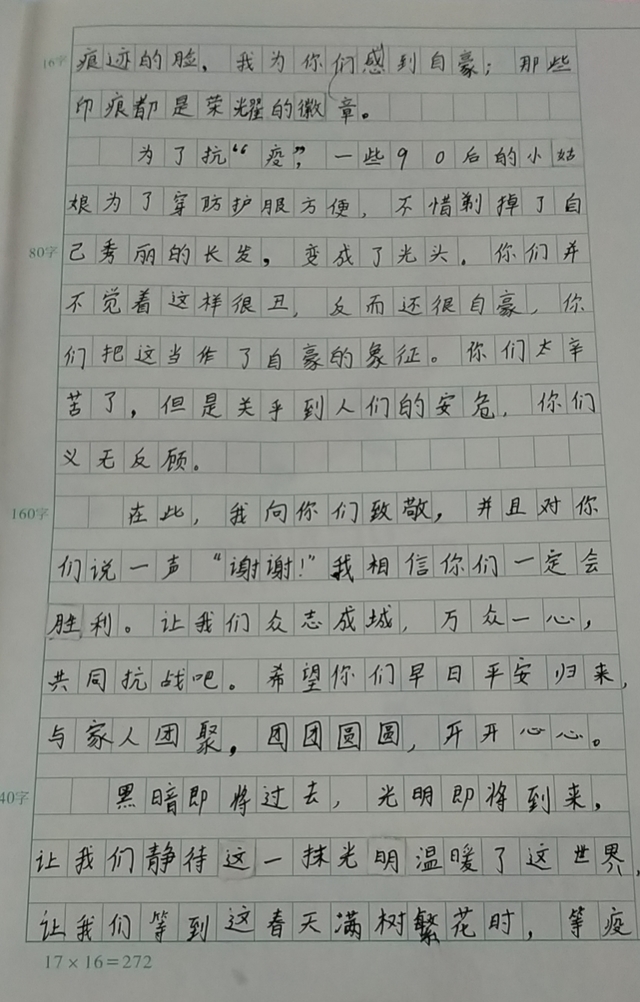 16字
痕迹的脸，我为你们感到自豪；那些
印痕都是荣耀的徽章。
为了抗“疫”，一些90后的小姑
娘为了穿防护服方便，不惜剃掉了自
80字
己秀丽的长发，变成了光头。你们并
不觉着这样很丑，反而还很自豪，你
们把这当作了自豪的象征。你们太辛
苦了，但是关乎到人们的安危，你们
义无反顾。
160字
在此，我向你们致敬，并且对你
们说一声“谢谢！”我相信你们一定会
胜利。让我们众志成城，万众一心，
共同抗战吧。希望你们早日平安归来，
与家人团聚，团团圆圆，开开心心。
40字
黑暗即将过去，光明即将到来，
让我们静待这一抹光明温暖了这世界，
让我们等到这春天满树繁花时，等疫
17×16=272